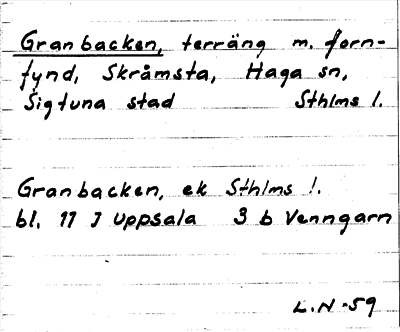 Granbacken, terräng m. forn-
fynd, Skråmsta, Haga sn,
Sigtuna stad Sthlms l.
Granbacken, ek Sthlms l.
bl. 11 J Uppsala 3 b Venngarn
L.N-59